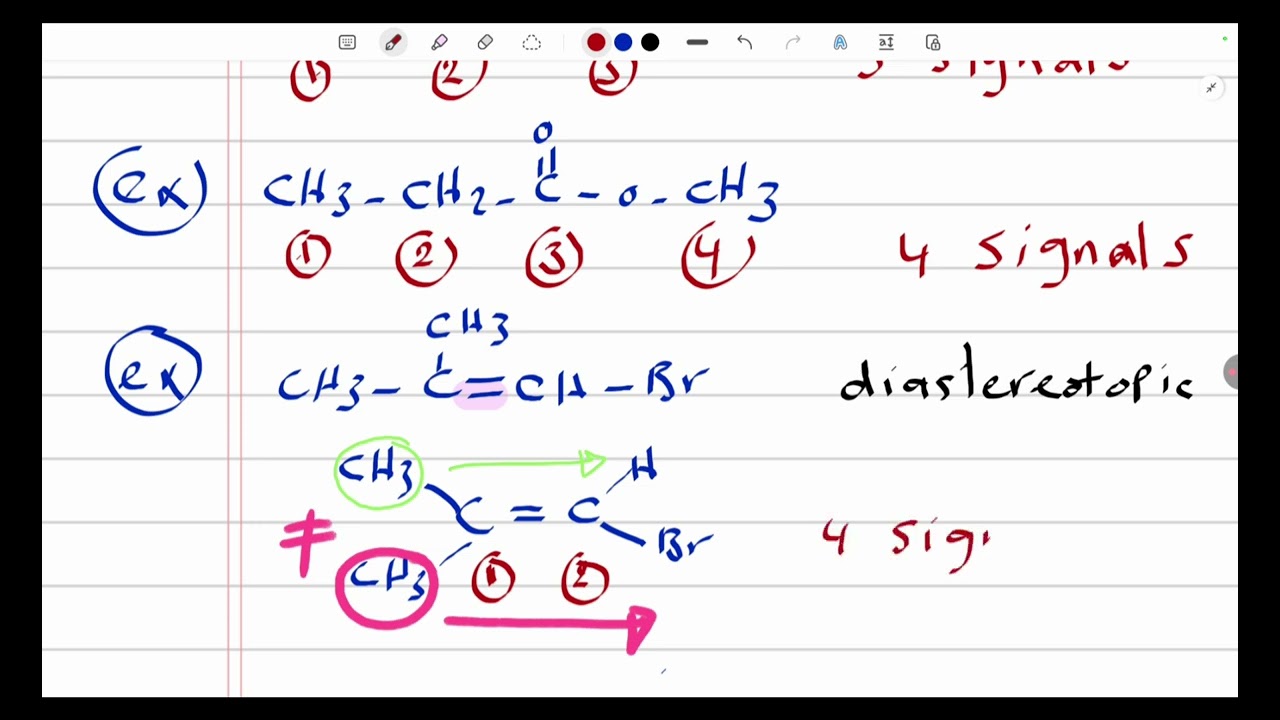 ① ② ③ 3 signals
O
ex CH3 - CH2 - C - O - CH3
① ② ③ ④ 4 signals
CH3
ex CH3 - C = CH - Br diastereotopic
CH3 H
≠ C = C
Br 4 sig
CH3 ① ②